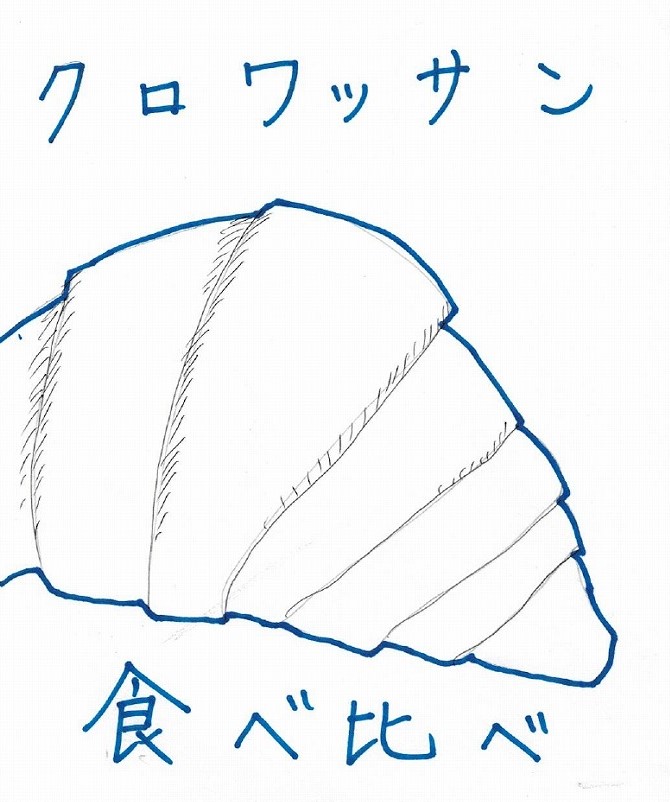 クロワッサン
食べ比べ